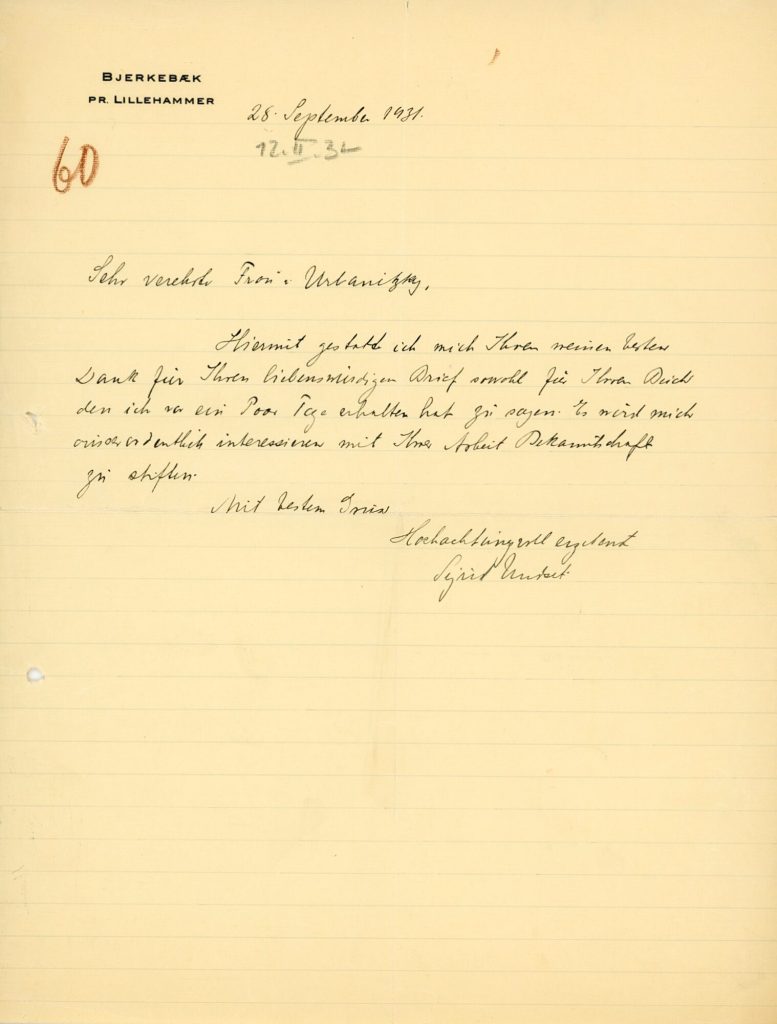 BJERKEBÆK
PR. LILLEHAMMER
28. September 1931.
12. II. 32
60
Sehr verehrte Frau v. Urbanitzky,
Hiermit gestatte ich mich Ihnen meinen besten
Dank für Ihren liebenswürdigen Brief sowohl für Ihren Buch
den ich vor ein Paar Tage erhalten hat zu sagen. Es wird mich
ausserordentlich interessieren mit Ihrer Arbeit Bekanntschaft
zu stiften.
Mit bestem Gruss
Hochachtungsvoll ergebenst
Sigrid Undset.